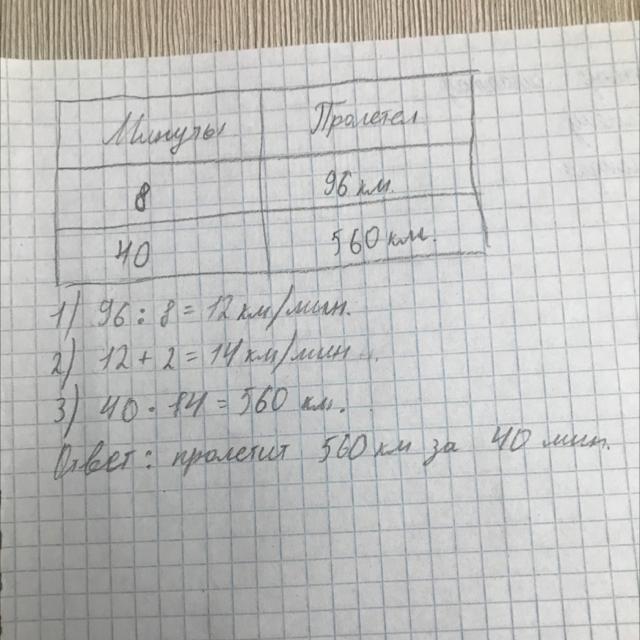 Минуты Пролетел
8 96 км.
40 560 км.
1) 96 : 8 = 12 км/мин.
2) 12 + 2 = 14 км/мин.
3) 40 · 14 = 560 км.
Ответ: пролетит 560 км за 40 мин.